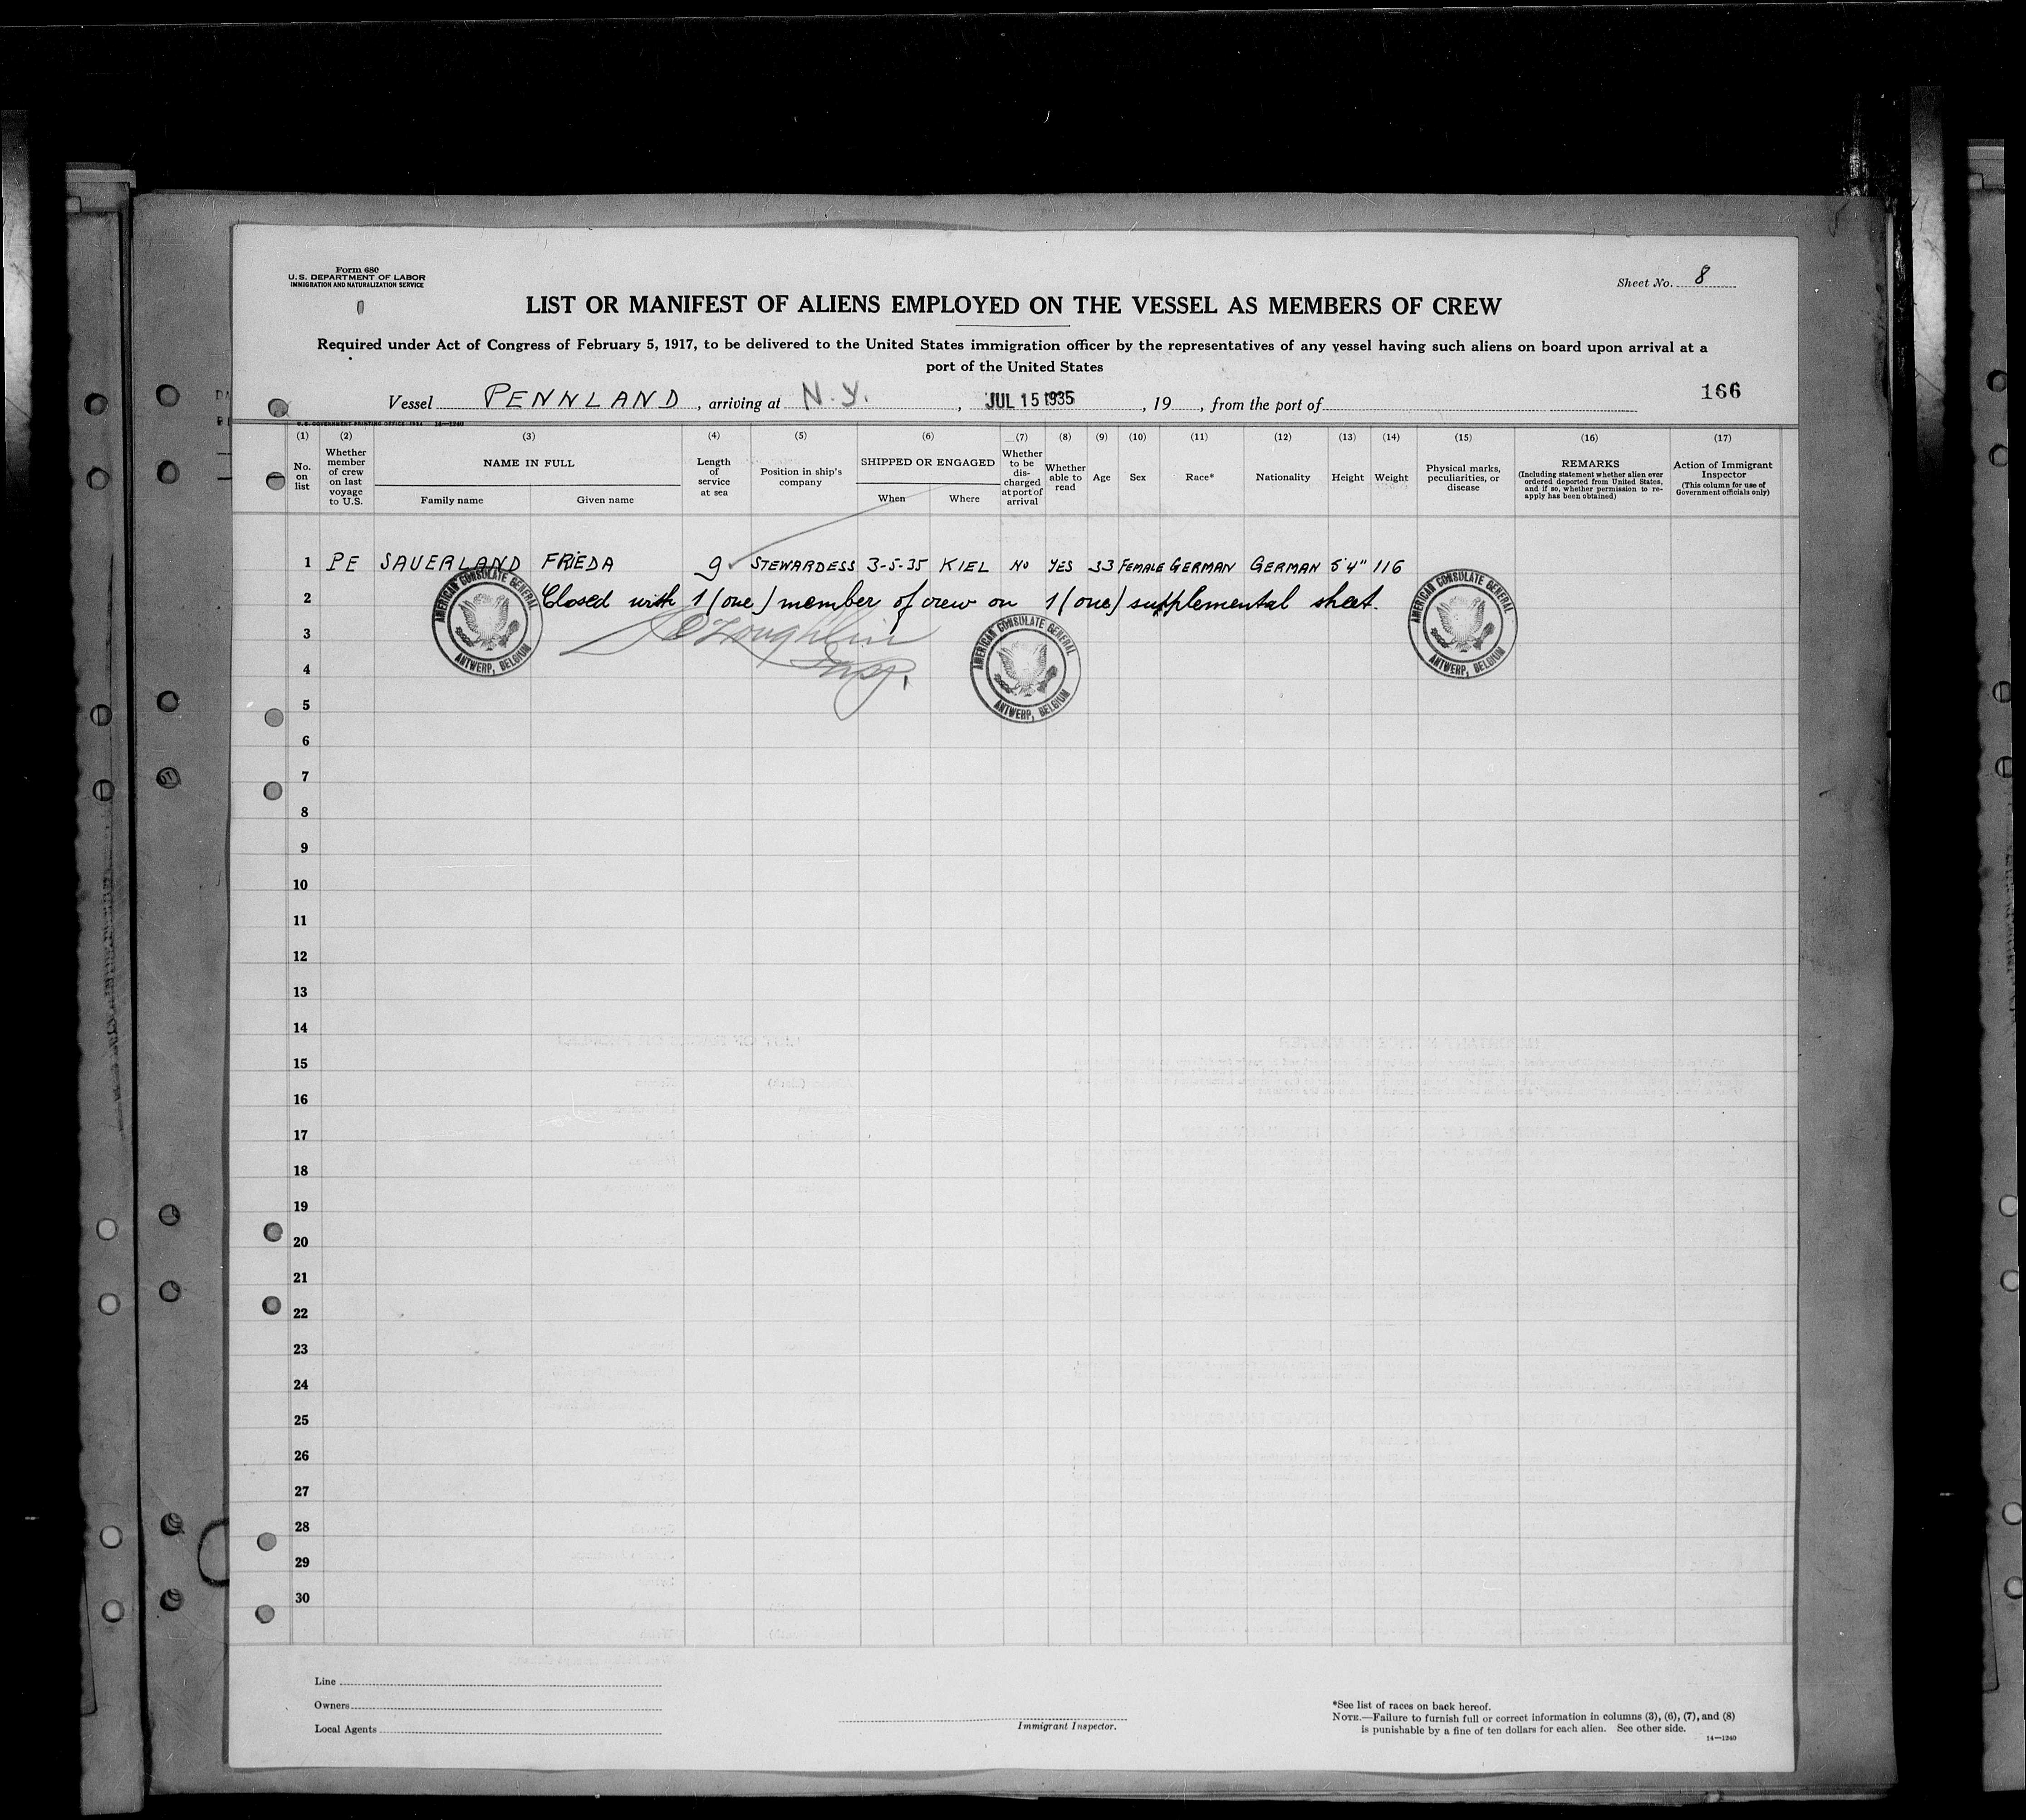 Form 680
U. S. DEPARTMENT OF LABOR
IMMIGRATION AND NATURALIZATION SERVICE
Sheet No. 8
LIST OR MANIFEST OF ALIENS EMPLOYED ON THE VESSEL AS MEMBERS OF CREW
Required under Act of Congress of February 5, 1917, to be delivered to the United States immigration officer by the representatives of any vessel having such aliens on board upon arrival at a
port of the United States
166
Vessel PENNLAND, arriving at N.Y., JUL 15 1935, 19, from the port of
U.S. GOVERNMENT PRINTING OFFICE: 1934 14—1240
(1) (2) (3) (4) (5) (6) (7) (8) (9) (10) (11) (12) (13) (14) (15) (16) (17)
No. on list
Whether member of crew on last voyage to U.S.
NAME IN FULL
Family name
Given name
Length of service at sea
Position in ship's company
SHIPPED OR ENGAGED
When
Where
Whether to be discharged at port of arrival
Whether able to read
Age
Sex
Race*
Nationality
Height
Weight
Physical marks, peculiarities, or disease
REMARKS
(Including statement whether alien ever ordered deported from United States, and if so, whether permission to re-apply has been obtained)
Action of Immigrant Inspector
(This column for use of Government officials only)
1 PE SAUERLAND FRIEDA 9 STEWARDESS 3-5-35 KIEL NO YES 33 FEMALE GERMAN GERMAN 5'4" 116
2 Closed with 1 (one) member of crew on 1 (one) supplemental sheet.
AMERICAN CONSULATE GENERAL
ANTWERP, BELGIUM
AMERICAN CONSULATE GENERAL
ANTWERP, BELGIUM
AMERICAN CONSULATE GENERAL
ANTWERP, BELGIUM
3 O'Loughlin
4 Insp.
5
6
7
8
9
10
11
12
13
14
15
16
17
18
19
20
21
22
23
24
25
26
27
28
29
30
Line
Owners
Local Agents
Immigrant Inspector.
*See list of races on back hereof.
NOTE.—Failure to furnish full or correct information in columns (3), (6), (7), and (8)
is punishable by a fine of ten dollars for each alien. See other side.
14—1240